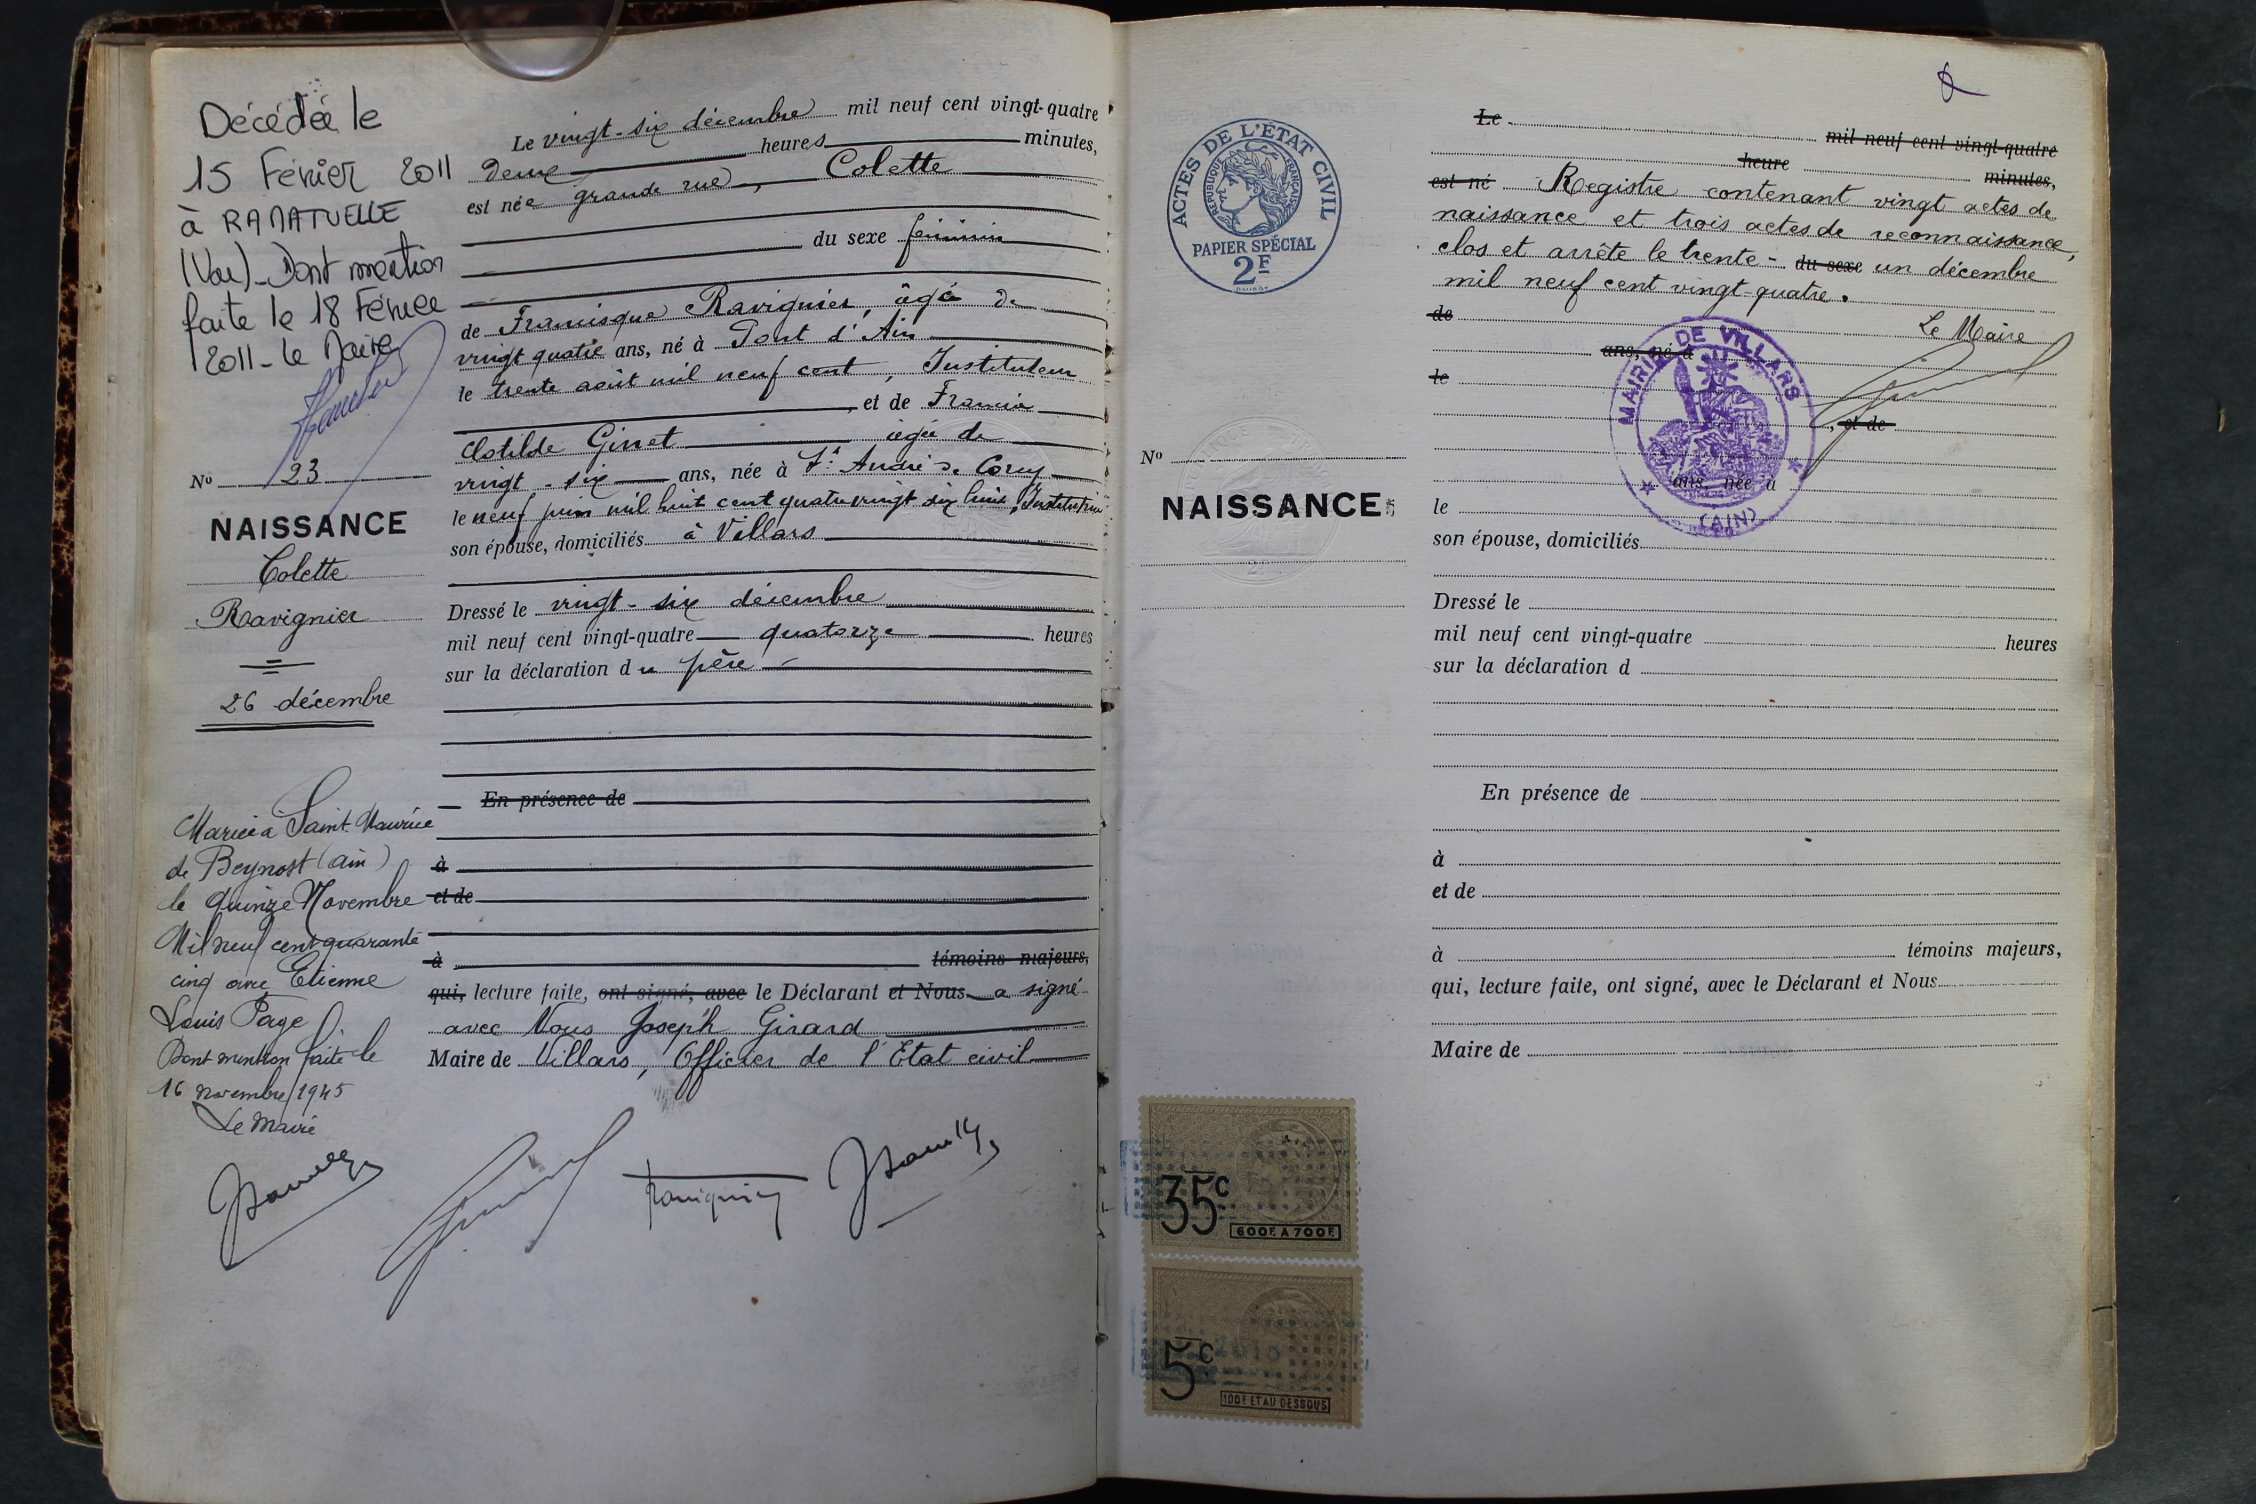 Décédée le
15 Février 2011
à RAMATUELLE
(Var) _ Dont mention
faite le 18 Février
2011 _ le Maire
No 23
NAISSANCE
Colette
Ravignier
26 décembre
Mariée à Saint-Maurice
de Beynost (ain)
le quinze Novembre
Mil neuf cent quarante
cinq avec Etienne
Louis Page
Dont mention faite le
16 novembre 1945
Le Maire
Le vingt-six décembre mil neuf cent vingt-quatre
deux heures minutes,
est née grande rue, Colette
du sexe féminin
de Francisque Ravignier, âgé de
vingt quatre ans, né à Pont d'Ain
le trente août mil neuf cent, Instituteur
, et de Francia
Clotilde Girret âgée de
vingt-six ans, née à St André de Corcy
le neuf juin mil huit cent quatre vingt dix huit, Institutrice
son épouse, domiciliés à Villars
Dressé le vingt-six décembre
mil neuf cent vingt-quatre quatorze heures
sur la déclaration du père
En présence de
à
et de
à témoins majeurs,
qui, lecture faite, ont signé, avec le Déclarant et Nous a signé
avec Nous Joseph Girard
Maire de Villars, Officier de l'Etat civil
Ravignier
ACTES DE L'ÉTAT CIVIL
RÉPUBLIQUE FRANÇAISE
PAPIER SPÉCIAL
2F
No
NAISSANCE
35c
600F A 700F
5c
100F ET AU DESSOUS
Le mil neuf cent vingt-quatre
heure minutes,
est né Registre contenant vingt actes de
naissance et trois actes de reconnaissance,
clos et arrêté le trente- du sexe un décembre
mil neuf cent vingt-quatre.
de Le Maire
ans, né à
le
, et de
MAIRIE DE VILLARS
(AIN)
ans, née à
le
son épouse, domiciliés
Dressé le
mil neuf cent vingt-quatre heures
sur la déclaration d
En présence de
à
et de
à témoins majeurs,
qui, lecture faite, ont signé, avec le Déclarant et Nous
Maire de